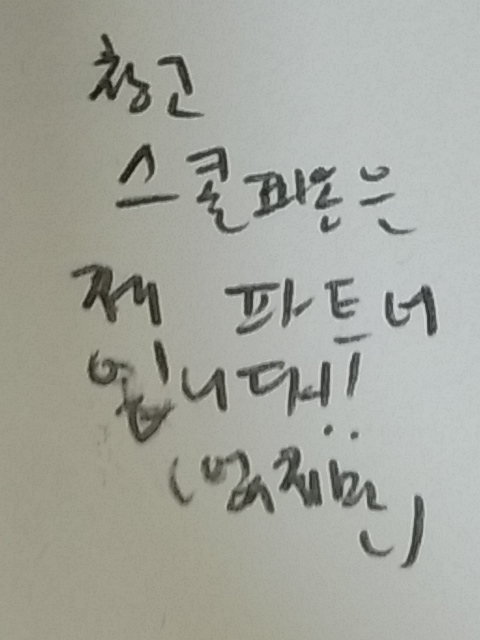 창고
스콜피온은
제 파트너
입니다!